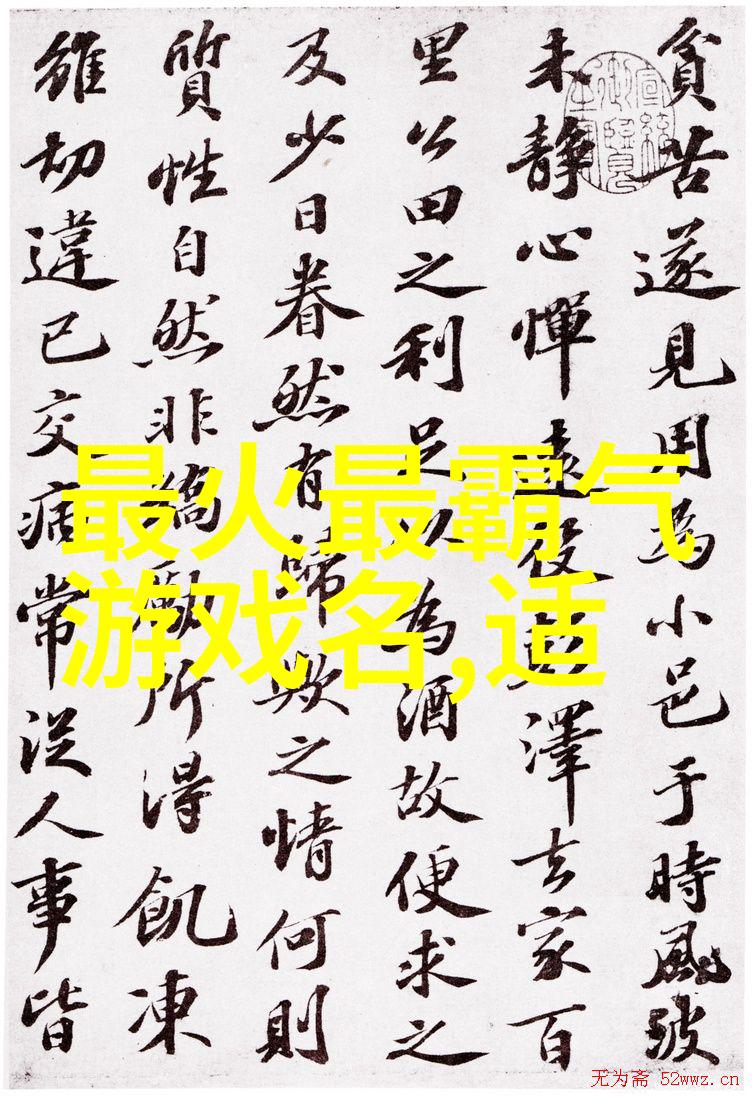 貧苦遂見用為小邑于時風波
未靜心憚遠役彭澤去家百
里公田之利足以為酒故便求之
及少日眷然有歸歟之情何則
質性自然非矯勵所得飢凍
雖切違已交病常從人事皆
最火最霸气
游戏名,适
无为斋 52wwz.cn